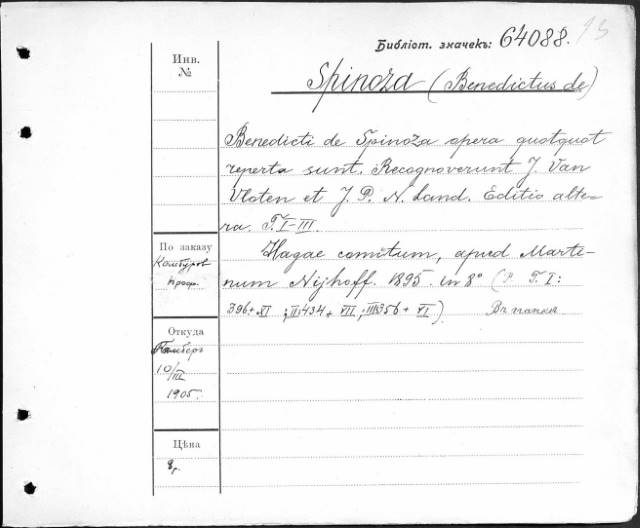 Библіот. значекъ: 64088. 13
Инв.
№
Spinoza (Benedictus de)
Benedicti de Spinoza opera quotquot
reperta sunt. Recognoverunt J. Van
Vloten et J. P. N. Land. Editio alte-
ra. T. I-III.
По заказу
проф.
Hagae comitum, apud Marti-
num Nijhoff. 1895. in 8° (P. T. I:
396+XI ; II:434+VII; III:356+VI). Въ папкѣ
Откуда
10/III
1905.
Цѣна
8р.